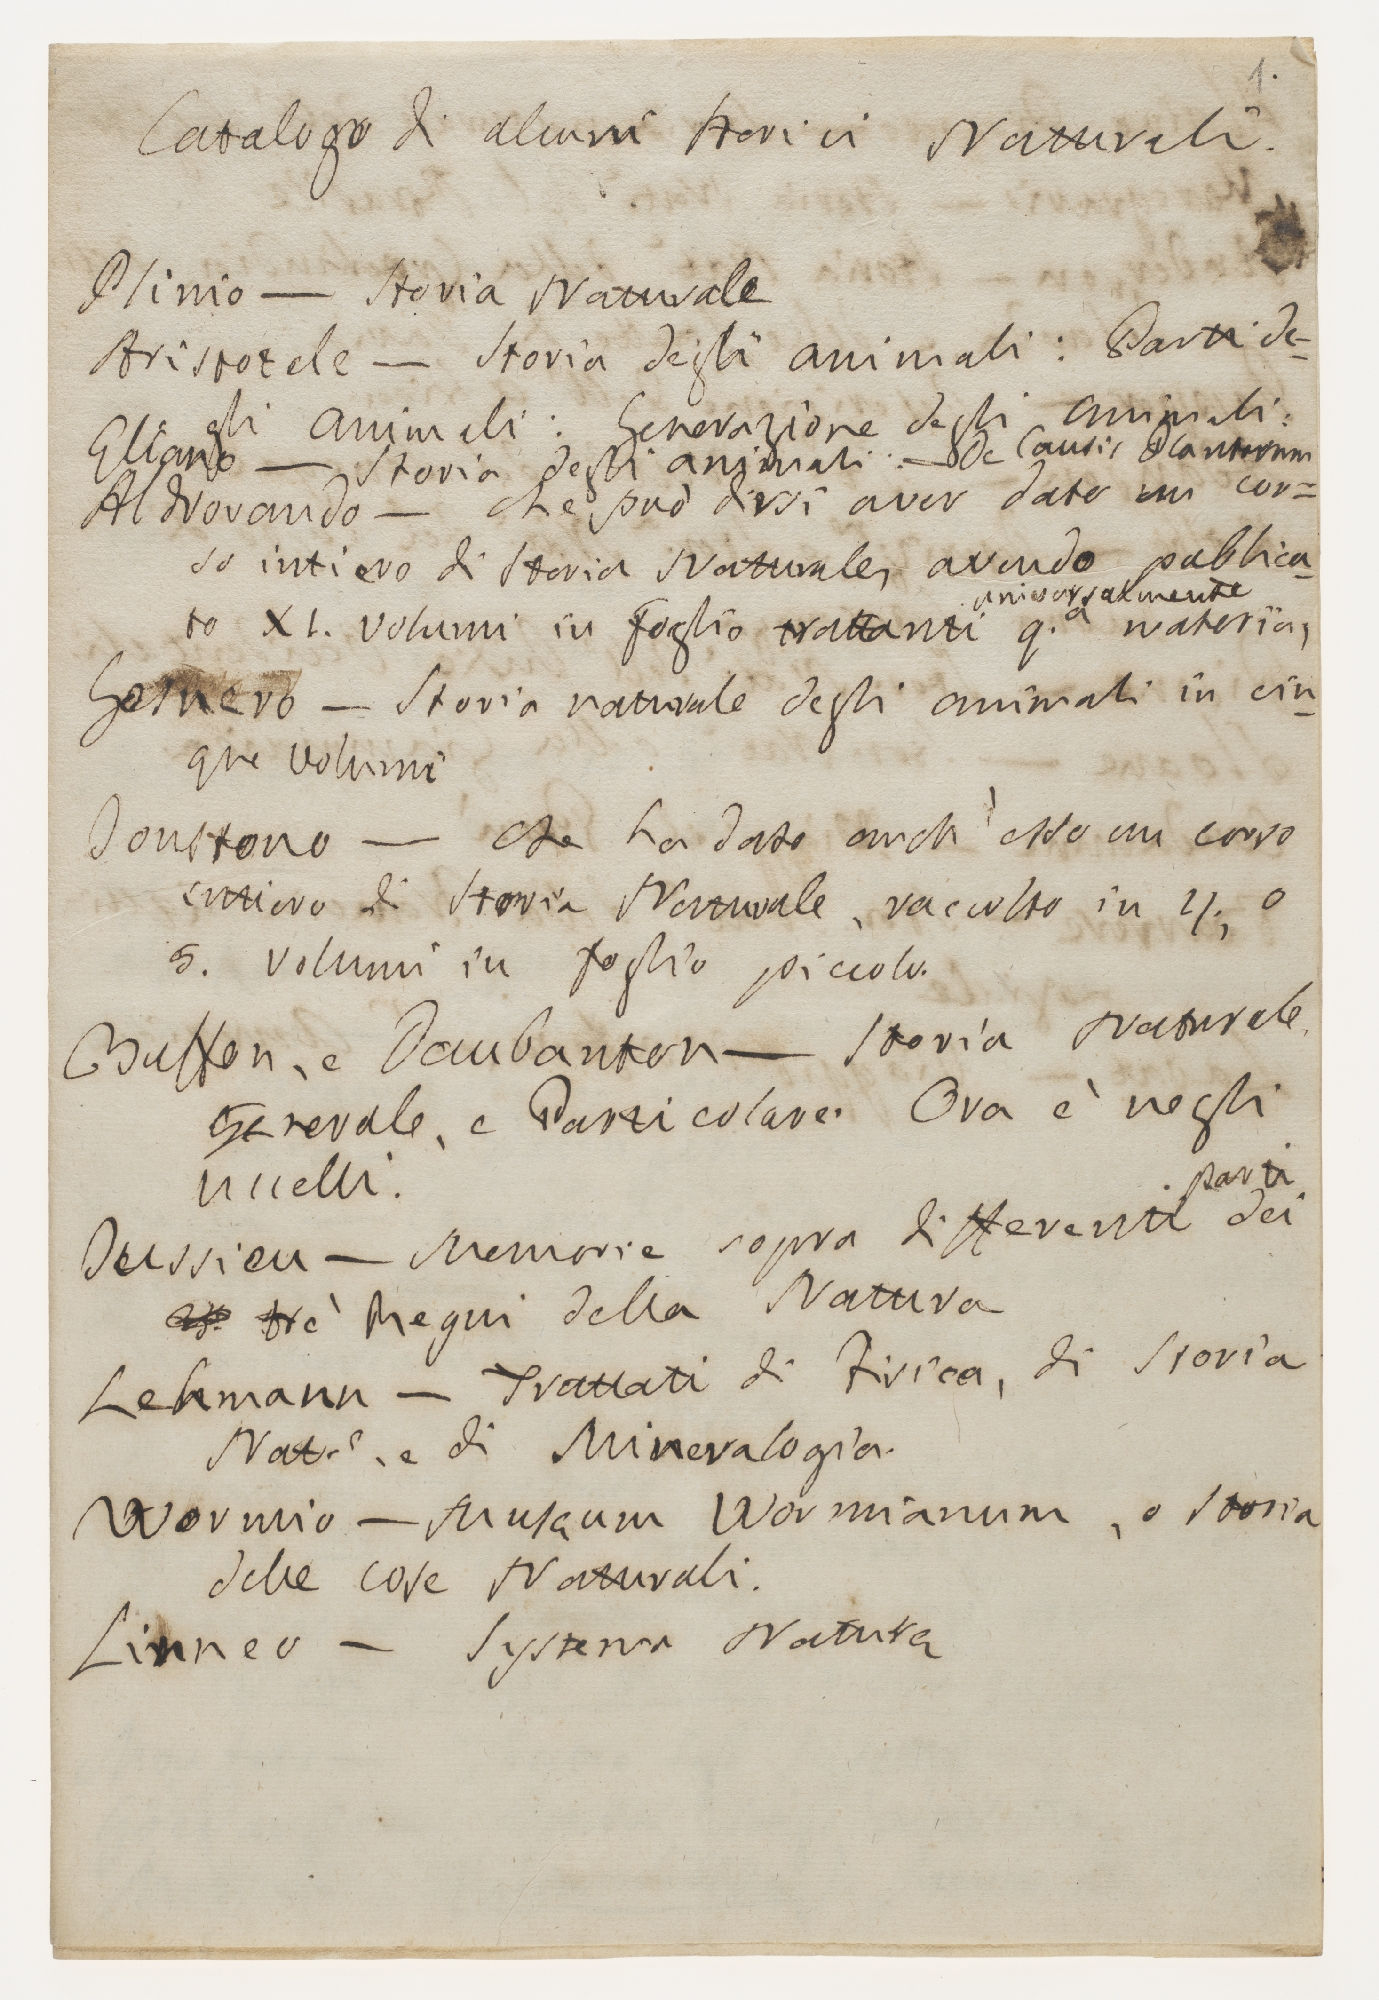 1.
Catalogo di alcuni Storici Naturali.
Plinio — Storia Naturale
Aristotele — Storia degli animali: Parti de=
gli animali: Generazione degli animali:
Eliano — Storia degli animali: — De Causis Plantarum
Aldrovando — che può dirsi aver dato un cor=
so intiero di Storia Naturale, avendo pubblica=
to XI. volumi in foglio trattanti universalmente q.a materia,
Gesnero — Storia naturale degli animali in cin=
que volumi
Jonstono — che ha dato anch'esso un corso
intiero di Storia Naturale, raccolto in 4, o
5. volumi in foglio piccolo.
Buffon, e Daubanton — Storia Naturale,
Generale, e Particolare. Ora è negli
uccelli.
Jeussieu — Memorie sopra differenti parti dei
trè Regni della Natura
Lehmann — Trattati di Fisica, di Storia
Nat.e, e di Mineralogia.
Wormio — Musæum Wormianum, o Storia
delle cose Naturali.
Linneo — Systema Naturæ